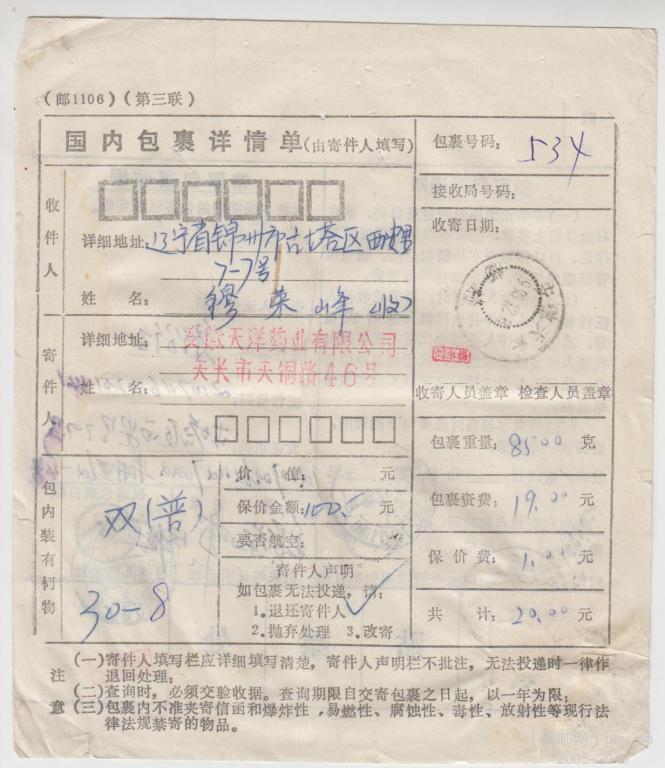 (邮1106)(第三联)
国内包裹详情单(由寄件人填写)
包裹号码: 534
接收局号码:
收件人
详细地址: 辽宁省锦州市古塔区西
7-7号
收寄日期:
姓 名: 穆荣峰(收)
寄件人
详细地址:
安徽天洋药业有限公司
天长市天铜路46号
姓 名:
收寄人员盖章 检查人员盖章
包裹重量: 8500 克
包裹资费: 19.00 元
保价费: 1.00 元
共 计: 20.00 元
包内装有何物
双(普)
30-8
价 值: 元
保价金额: 100.- 元
要否航空:
寄件人声明
如包裹无法投递,请:
1.退还寄件人 ✓
2.抛弃处理 3.改寄
注意
(一)寄件人填写栏应详细填写清楚,寄件人声明栏不批注,无法投递时一律作
退回处理;
(二)查询时,必须交验收据。查询期限自交寄包裹之日起,以一年为限;
(三)包裹内不准夹寄信函和爆炸性、易燃性、腐蚀性、毒性、放射性等现行法
律法规禁寄的物品。